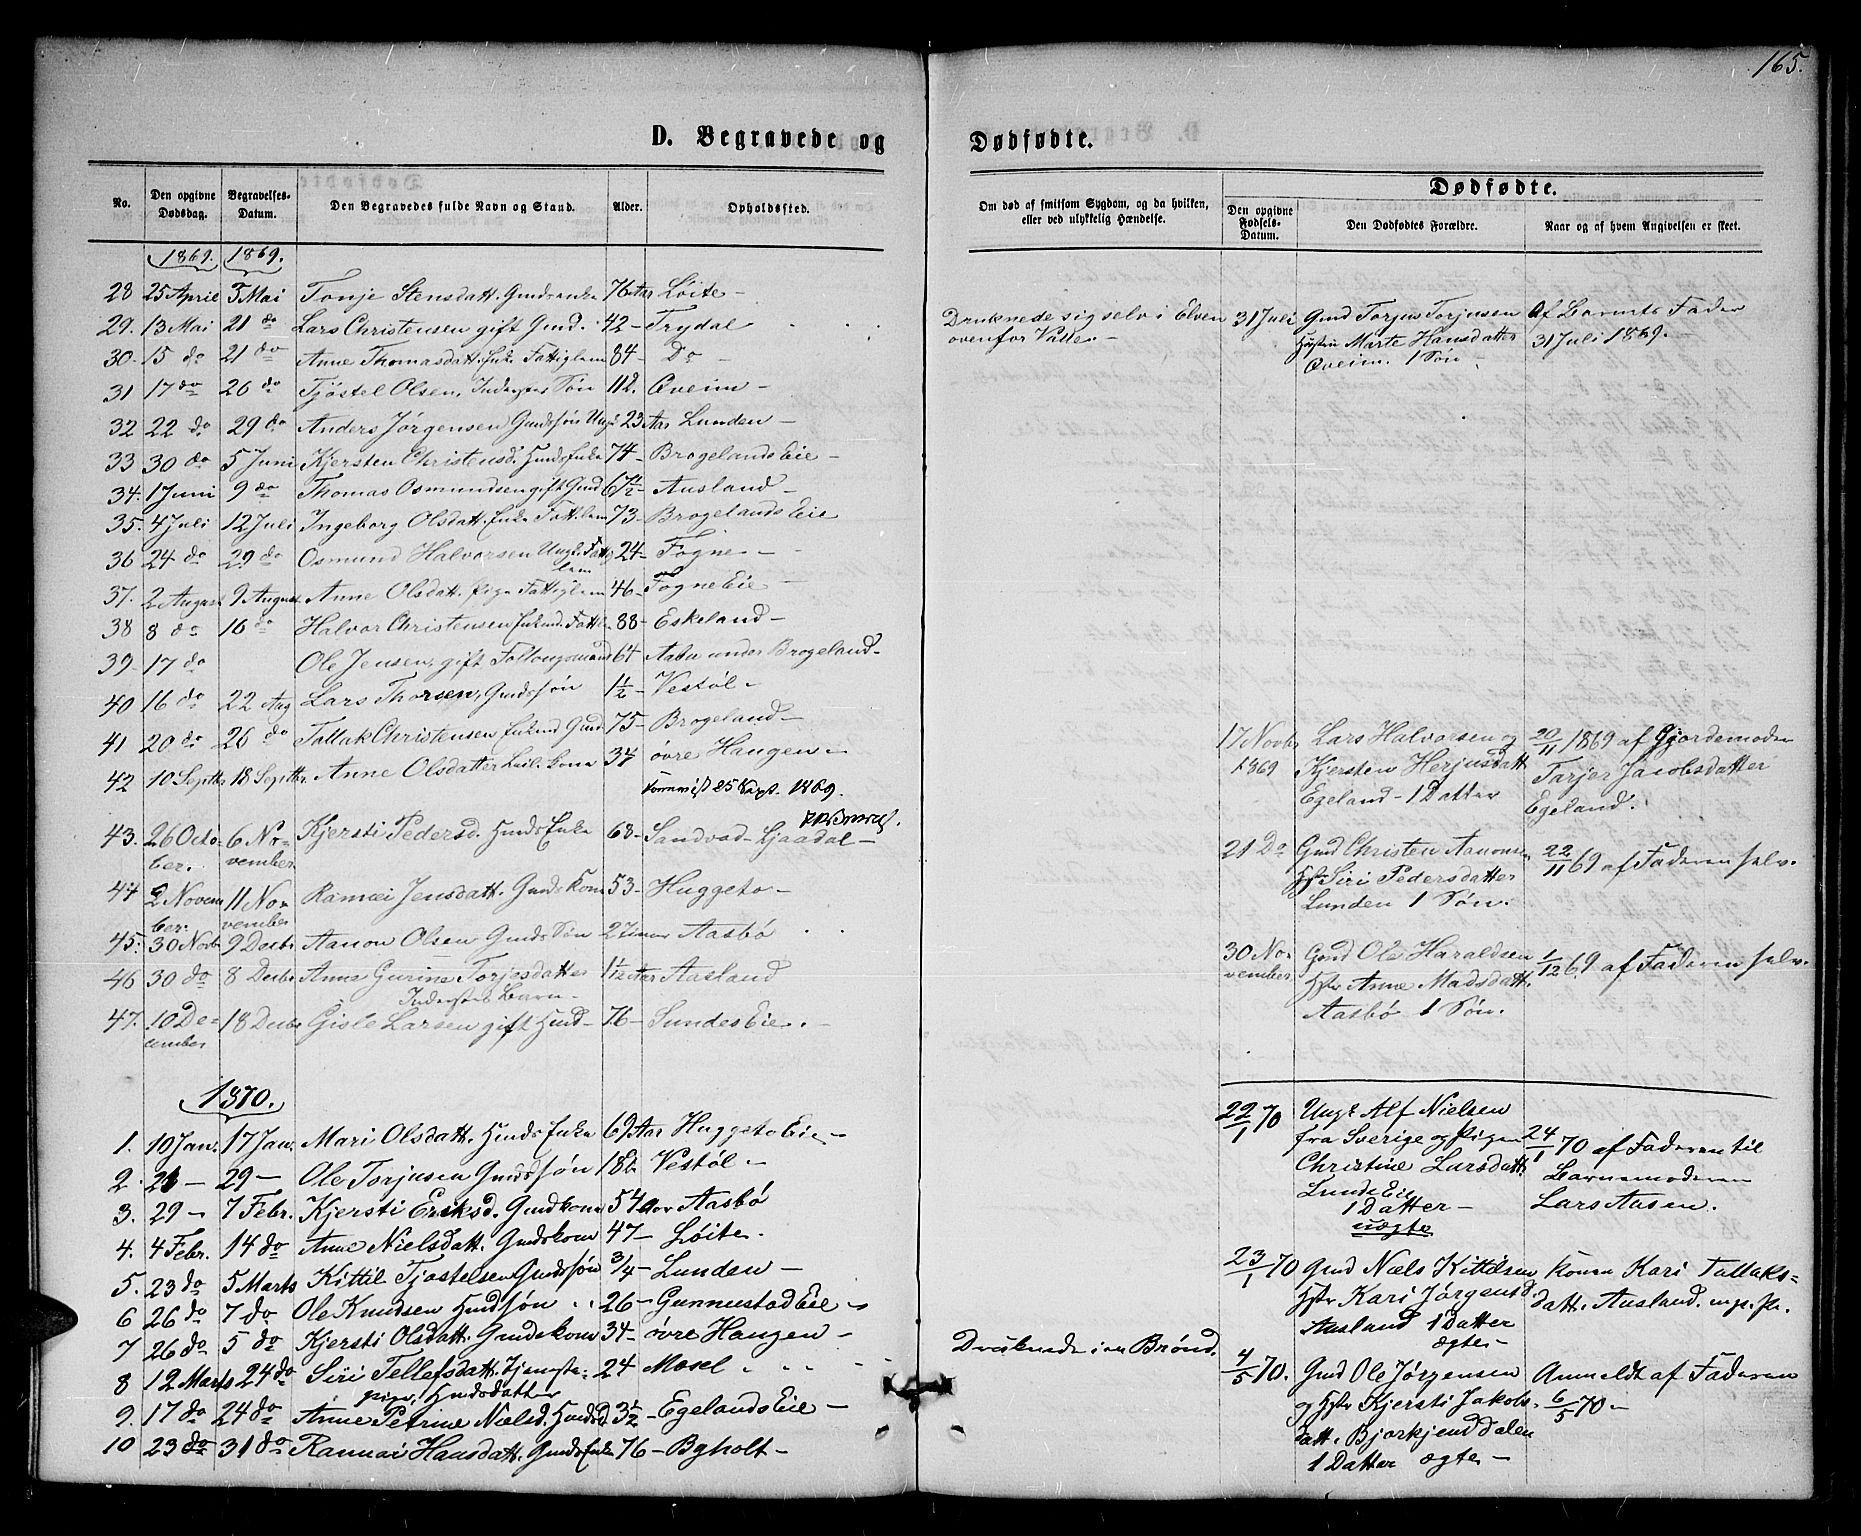 165.
D. Begravede og
Dødfødte.
No.
Den opgivne Dødsdag.
Begravelses-Datum.
Den Begravedes fulde Navn og Stand.
Alder.
Opholdssted.
Om død af smitsom Sygdom, og da hvilken, eller ved ulykkelig Hændelse.
Dødfødte.
Den opgivne Fødsels-Datum.
Den Dødfødtes Forældre.
Naar og af hvem Angivelsen er skeet.
1869. 1869.
28 25 April 3 Mai Tonje Stensdatt. Gmdsenke 76 Aar Løite -
29. 13 Mai 21 do Lars Christensen gift Gmd. 42 - Trydal
30. 15 do 21 do Anne Thomasdatt. Enke Fattiglem 84 - Do -
31 17 do 26 do Tjøstel Olsen, Inderstes Søn 11 d. Øveim -
32 22 do 29 do Anders Jørgensen Gmdssøn Ungk 23 Aar Lunden -
33 30 do 5 Juni Kjersten Christensd. Hmds Enke 74 - Brogelands Eie -
34. 1 Juni 9 do Thomas Osmundsen gift Gmd 67 1/2 - Ausland -
35. 4 Juli 12 Juli Ingeborg Olsdatt. Enke Fatt.lem 73 - Brogelands Eie
36 24 do 29 do Osmund Halvorsen Ungk. Fattg 24 - Fogne -
lem
37. 2 August 9 August Anne Olsdatt. Pige Fattiglem 46 - Fogne Eie -
38 8 do 16 do Halvor Christensen Enkmd. Fattl. 88 - Eskeland -
39. 17 do Ole Jensen, gift 64 - under Brogeland -
40 16 do 22 Aug Lars Thorsen, Gmdssøn 1 1/2 - Vestøl -
41 20 do 26 do Tallak Christensen Enkmd Gmd 75 - Brogeland -
42 10 Septbr 18 Septbr. Anne Olsdatter Leil. kone 34 - øvre Haugen -
25 Sept. 1869.
43. 26 Octo- 6 No- Kjersti Pedersd. Hmds Enke 63 - Sandvad - Gjaadal -
ber. vember
44 2 Novem 11 No- Ramæi Jensdatt. Gmds Kone 53 - Huggeto -
ber. vember
45. 30 Novbr 9 Decbr Aanon Olsen Gmds Søn 2 Timer Aasbø
46 30 do 8 Decbr Anne Gurine Torjesdatter 1 1/12 Aar Aasland
Inderstes Barn -
47. 10 De- 18 Decbr Gisle Larsen gift Hmd - 76 - Sundes Eie. -
cember
1870.
1. 10 Jan. 17 Jan. Mari Olsdatt. Hmds Enke 69 Aar Huggeto Eie -
2. 21 - 29 - Ole Torjusen Gmdssøn 18 d. Vestøl -
3. 29 - 7 Febr. Kjersti Eriksd. Gmdkone 54 Aar Aasbø
4. 4 Febr. 14 do Anne Nielsdatt. Gmdskone 47 - Løite.
5. 23 do 5 Marts Kittil Tjøstelsen Gmdssøn 3/4 - Lunden -
6 26 do 7 do Ole Knudsen Hmdssøn 26 - Gunnustad Eie -
7 26 do 5 do Kjersti Olsdatt. Gmdskone 34 - øvre Haugen -
8 12 Marts 24 do Siri Tellefsdatt. Tjeneste- 24 Mosel
pige, Hmdsdatter
9. 17 do 24 do Anne Petrine Nielsd. Hmdsd 3 1/2 - Egelands Eie -
10 23 do 31 do Rannæi Hansdatt. Gmds Enke 76 - Bgholt -
Druknede sig selv i Elven
ovenfor Valle. -
Druknede i en Brønd.
31 Juli Gmd Torjus Torjusen Af Barnets Fader
Hustru Marte Hansdatter 31 Juli 1869.
Øveim. 1 Søn
17 Novbr Lars Halvorsen og 20/11 1869 af Gjordemoder
1869 Kjersten Herjusdatt Tarjer Jacobsdatter
Egeland - 1 Datter Egeland.
21 Do Gmd Christen Aanonsen 22/11 69 af Faderen selv.
Hst Siri Pedersdatter
Lunden 1 Søn.
30 No- Gmd Ole Haraldsen 1/12 69 af Faderen selv.
vember. Hstr Anne Madsdatt.
Aasbø 1 Søn.
22/1 70 Ungk Alf Nielsen
fra Sverige og Pigen 24/1 70 af Faderen til
Christine Larsdatt. Barnemoderen
Lunds Eie Lars Aasen.
1 Datter -
uægte
23/1 70 Gmd Niels Kittilsen konen Kari Tallaks=
Hstr Kari Jørgensd. datt. Ausland.
Ausland 1 Datter
ægte -
4/5 70. Gmd Ole Jørgensen Anmeldt af Faderen
og Hstr Kjersti Jakobs- 6/5 70 -
datt. Bjorkjend dalen
1 Datter ægte -